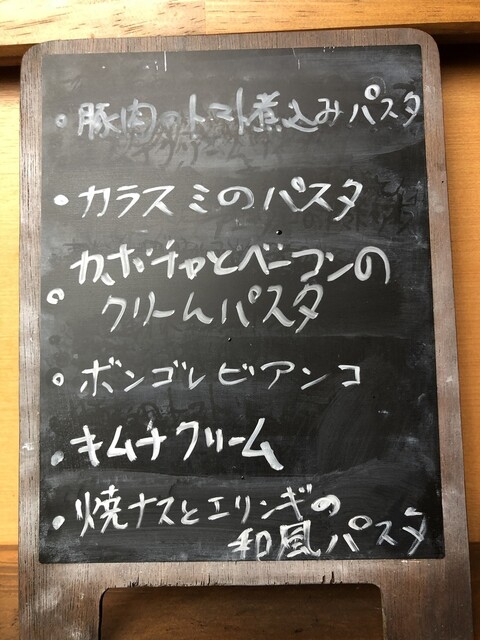 ・豚肉のトマト煮込みパスタ
・カラスミのパスタ
・カボチャとベーコンの
クリームパスタ
・ボンゴレビアンコ
・キムチクリーム
・焼ナスとエリンギの
和風パスタ